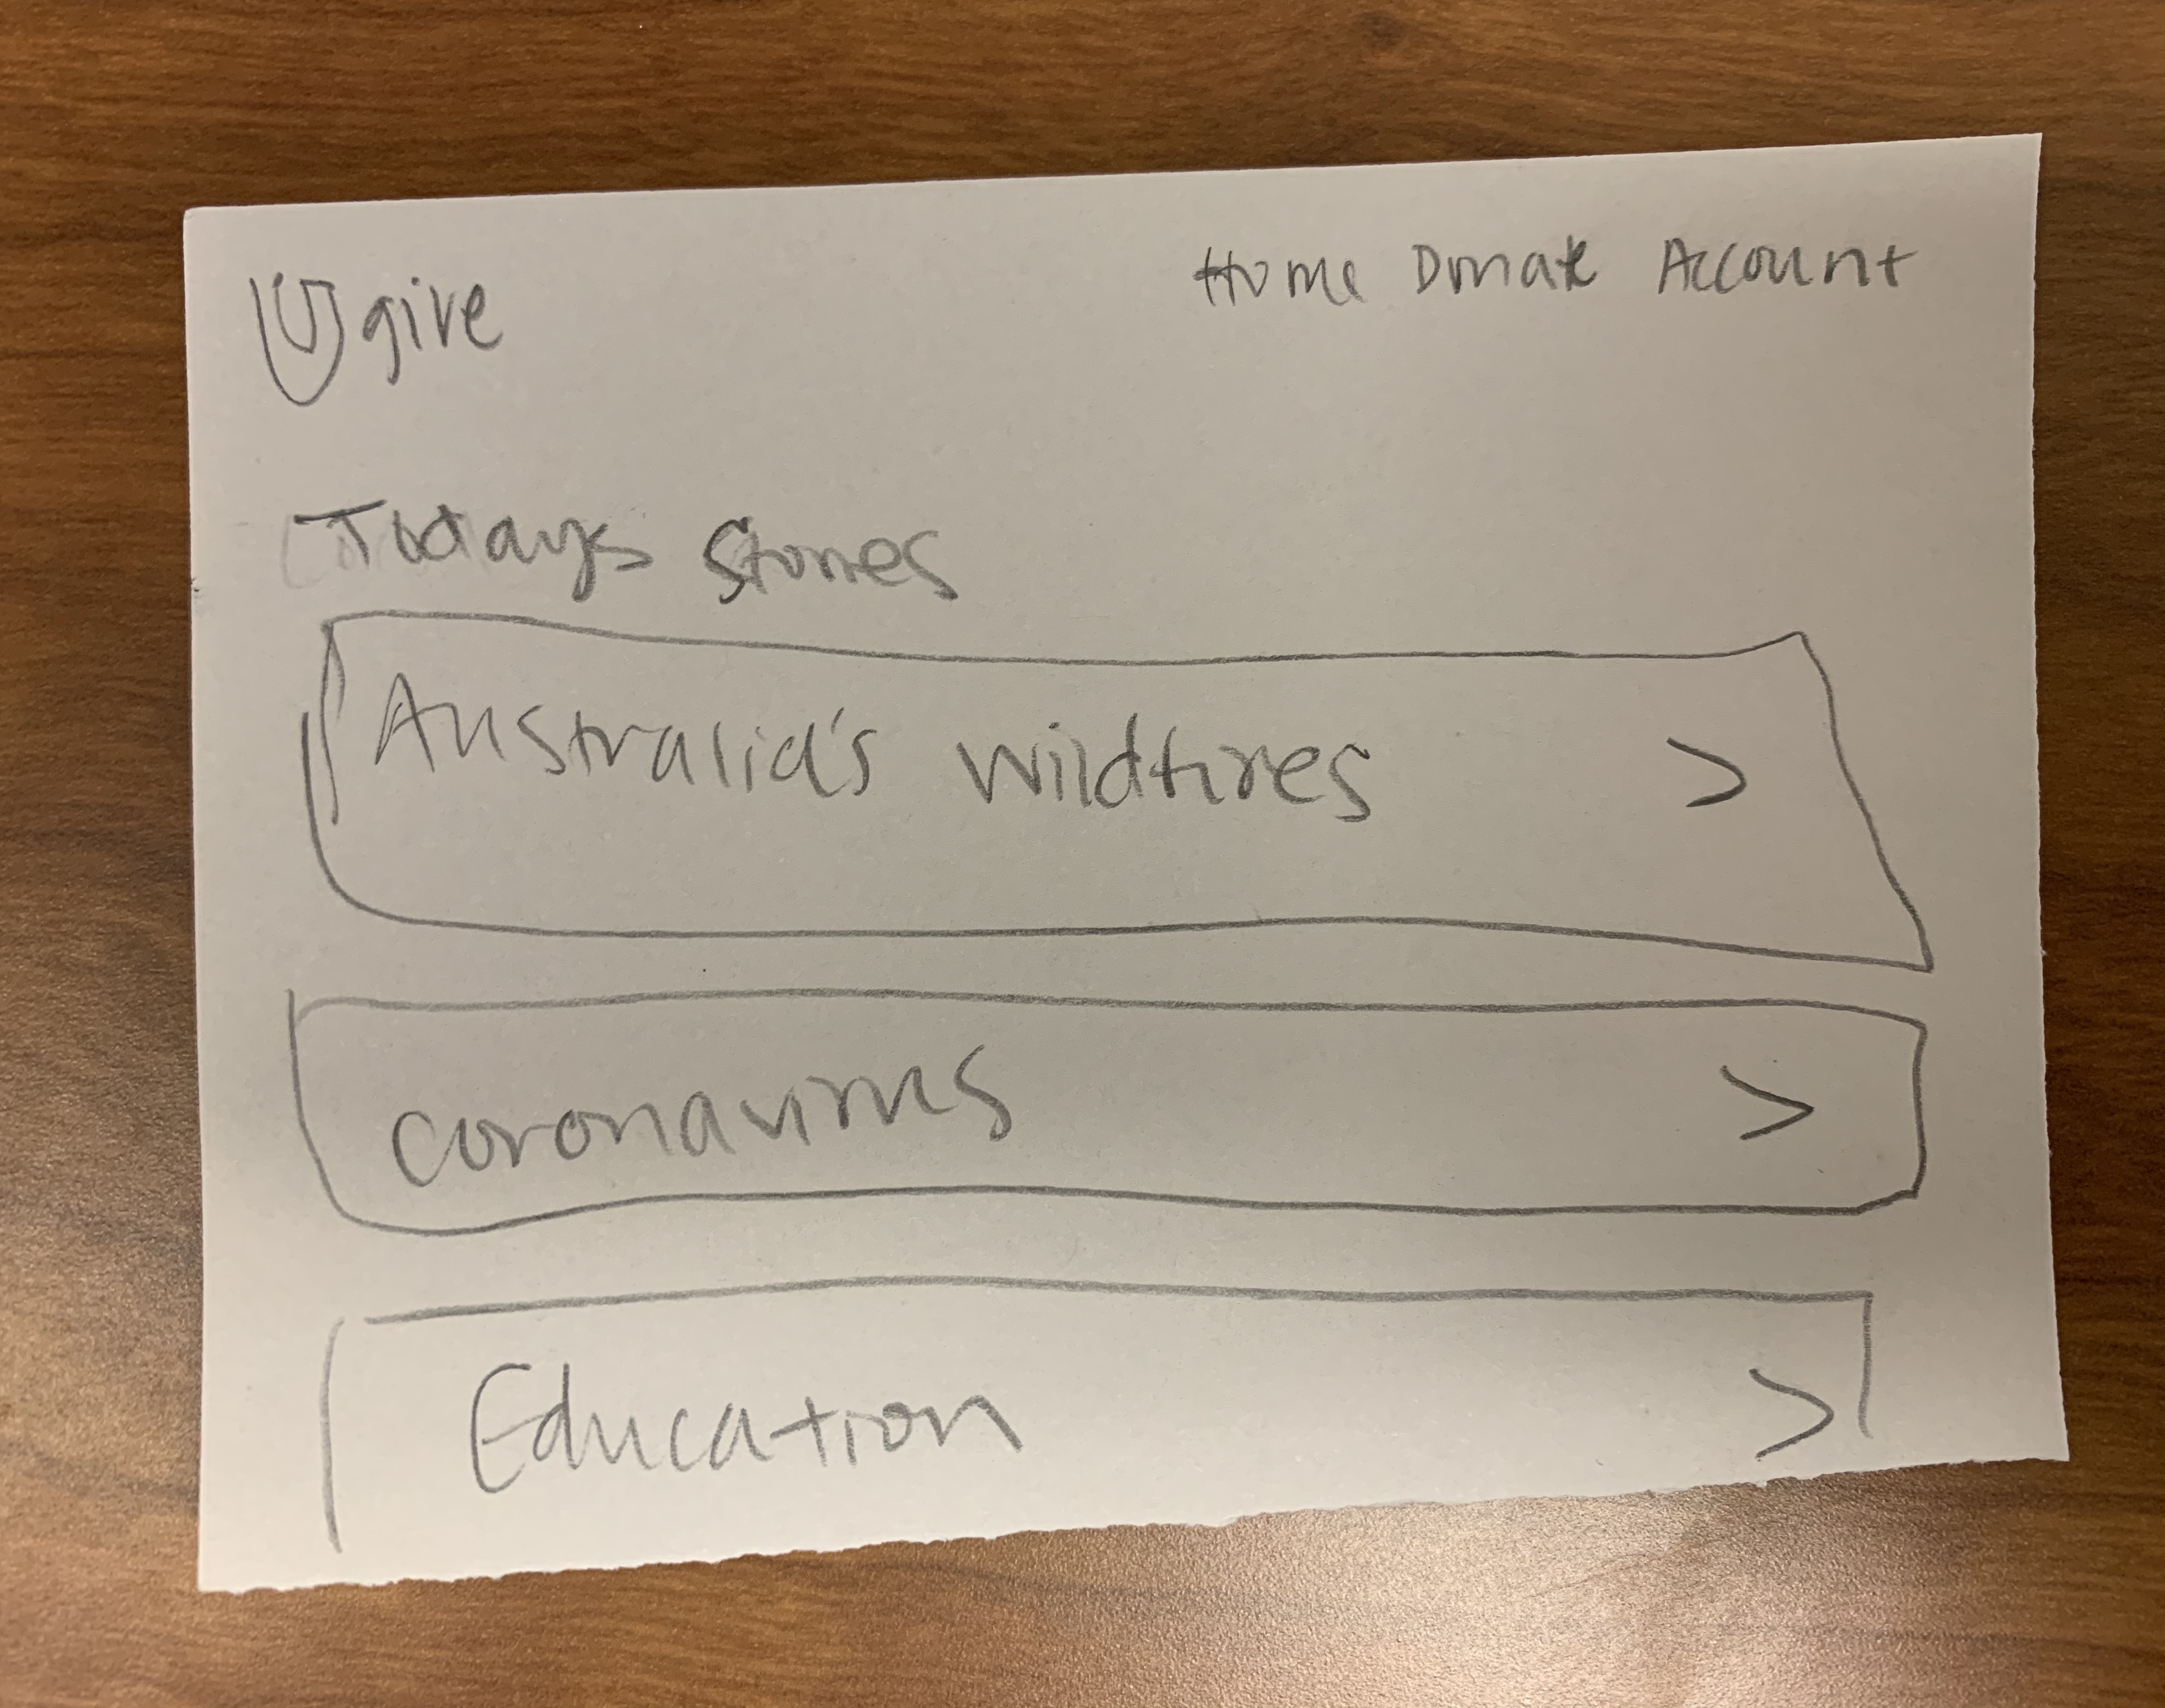 U give
Home Donate Account
Todays Stories
Australia's wildfires >
coronavirus >
Education >